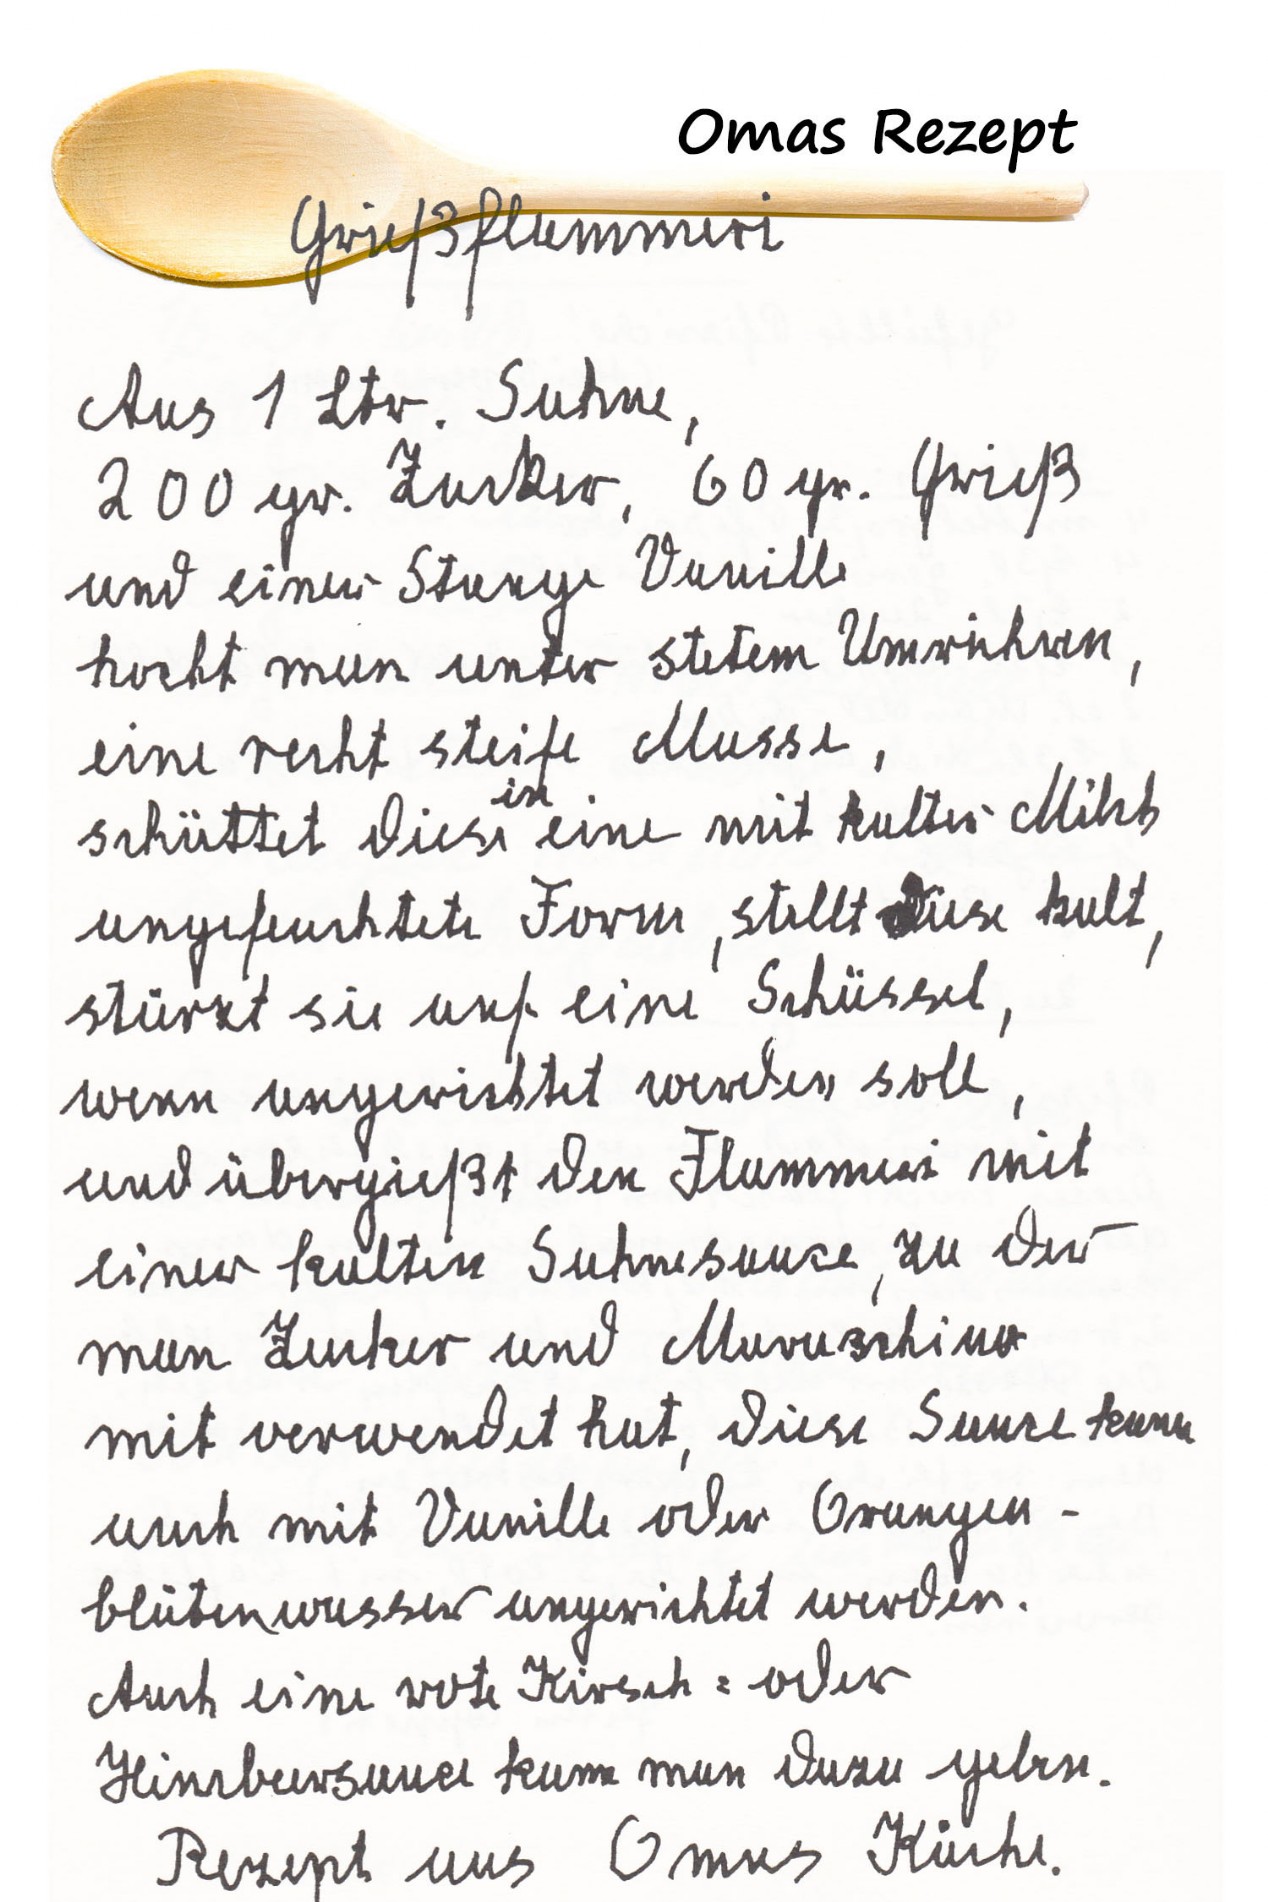 Omas Rezept
Grießflammeri
Aus 1 Ltr. Sahne,
200 gr. Zucker, 60 gr. Grieß
und einer Stange Vanille
kocht man unter stetem Umrühren,
eine recht steife Masse,
schüttet diese in eine mit kalter Milch
angefeuchtete Form, stellt diese kalt,
stürzt sie auf eine Schüssel,
wenn angerichtet werden soll,
und übergießt den Flammeri mit
einer kalten Sahnesauce, zu der
man Zucker und Maraschino
mit verwendet hat, diese Sauce kann
auch mit Vanille oder Orangen-
blütenwasser angerichtet werden.
Auch eine rote Kirsch= oder
Himbeersauce kann man dazu geben.
Rezept aus Omas Küche.